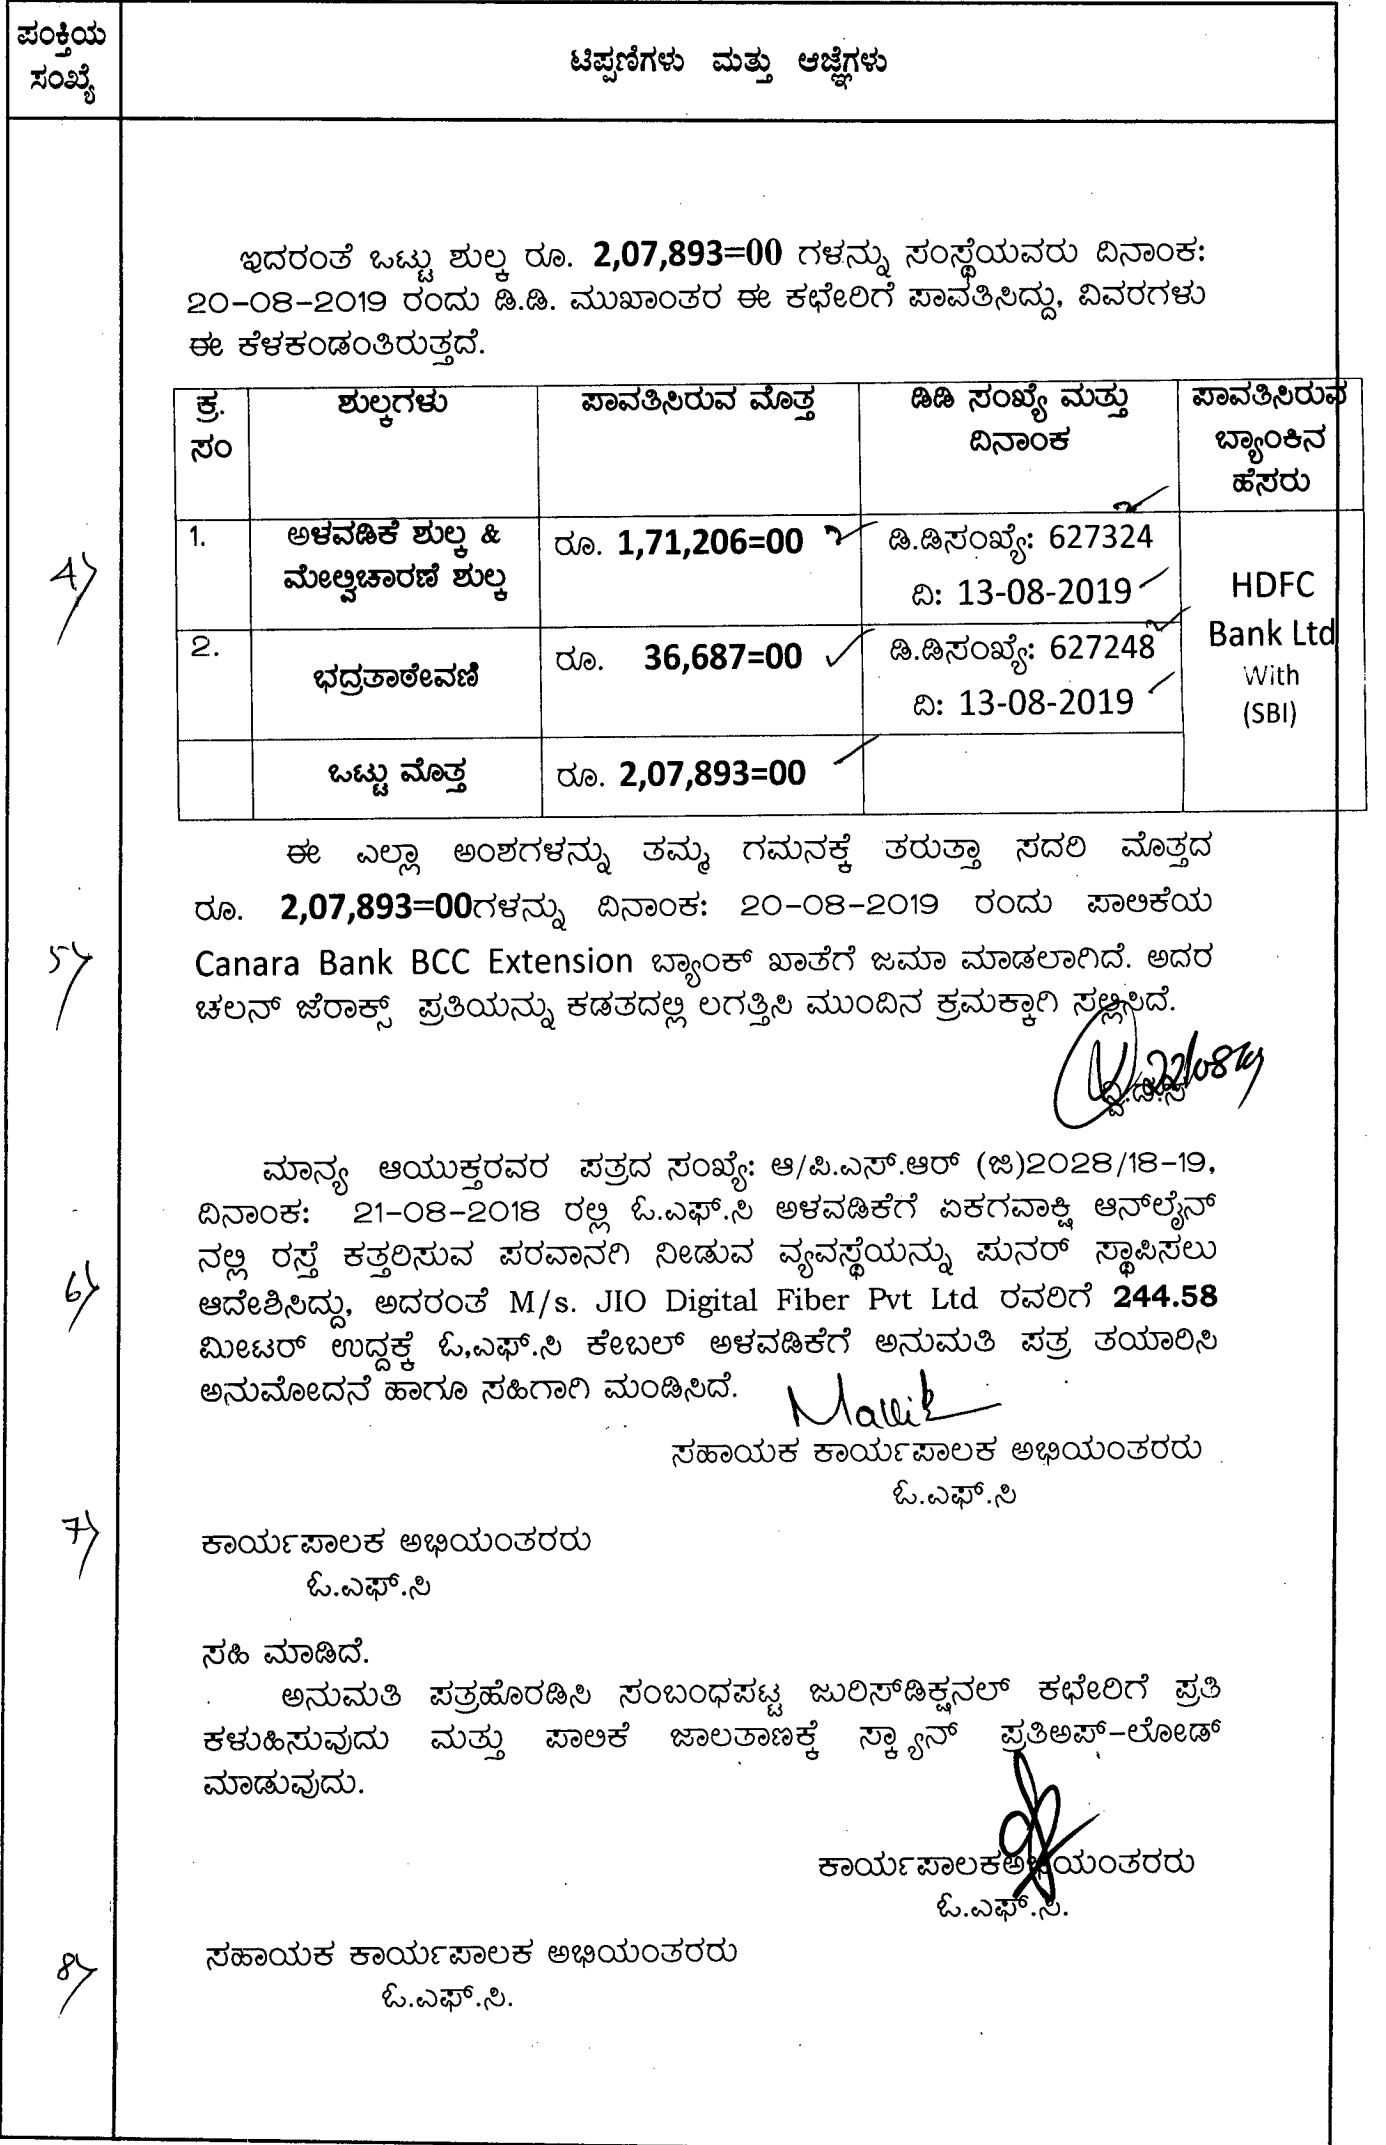 ಪಂಕ್ತಿಯ
ಸಂಖ್ಯೆ
ಟಿಪ್ಪಣಿಗಳು ಮತ್ತು ಆಜ್ಞೆಗಳು
ಇದರಂತೆ ಒಟ್ಟು ಶುಲ್ಕ ರೂ. 2,07,893=00 ಗಳನ್ನು ಸಂಸ್ಥೆಯವರು ದಿನಾಂಕ:
20-08-2019 ರಂದು ಡಿ.ಡಿ. ಮುಖಾಂತರ ಈ ಕಛೇರಿಗೆ ಪಾವತಿಸಿದ್ದು, ವಿವರಗಳು
ಈ ಕೆಳಕಂಡಂತಿರುತ್ತದೆ.
ಕ್ರ.
ಸಂ
ಶುಲ್ಕಗಳು
ಪಾವತಿಸಿರುವ ಮೊತ್ತ
ಡಿಡಿ ಸಂಖ್ಯೆ ಮತ್ತು
ದಿನಾಂಕ
ಪಾವತಿಸಿರುವ
ಬ್ಯಾಂಕಿನ
ಹೆಸರು
4)
1.
ಅಳವಡಿಕೆ ಶುಲ್ಕ &
ಮೇಲ್ವಿಚಾರಣೆ ಶುಲ್ಕ
ರೂ. 1,71,206=00
ಡಿ.ಡಿಸಂಖ್ಯೆ: 627324
ದಿ: 13-08-2019
HDFC
Bank Ltd
With
(SBI)
2.
ಭದ್ರತಾಠೇವಣಿ
ರೂ. 36,687=00
ಡಿ.ಡಿಸಂಖ್ಯೆ: 627248
ದಿ: 13-08-2019
ಒಟ್ಟು ಮೊತ್ತ
ರೂ. 2,07,893=00
ಈ ಎಲ್ಲಾ ಅಂಶಗಳನ್ನು ತಮ್ಮ ಗಮನಕ್ಕೆ ತರುತ್ತಾ ಸದರಿ ಮೊತ್ತದ
ರೂ. 2,07,893=00ಗಳನ್ನು ದಿನಾಂಕ: 20-08-2019 ರಂದು ಪಾಲಿಕೆಯ
5)
Canara Bank BCC Extension ಬ್ಯಾಂಕ್ ಖಾತೆಗೆ ಜಮಾ ಮಾಡಲಾಗಿದೆ. ಅದರ
ಚಲನ್ ಜೆರಾಕ್ಸ್ ಪ್ರತಿಯನ್ನು ಕಡತದಲ್ಲಿ ಲಗತ್ತಿಸಿ ಮುಂದಿನ ಕ್ರಮಕ್ಕಾಗಿ ಸಲ್ಲಿಸಿದೆ.
22/08/19
ದ್ವಿ.ದ.ಸ
ಮಾನ್ಯ ಆಯುಕ್ತರವರ ಪತ್ರದ ಸಂಖ್ಯೆ: ಆ/ಪಿ.ಎಸ್.ಆರ್ (ಜಿ)2028/18-19,
ದಿನಾಂಕ: 21-08-2018 ರಲ್ಲಿ ಓ.ಎಫ್.ಸಿ ಅಳವಡಿಕೆಗೆ ಏಕಗವಾಕ್ಷಿ ಆನ್‌ಲೈನ್
ನಲ್ಲಿ ರಸ್ತೆ ಕತ್ತರಿಸುವ ಪರವಾನಗಿ ನೀಡುವ ವ್ಯವಸ್ಥೆಯನ್ನು ಪುನರ್ ಸ್ಥಾಪಿಸಲು
6)
ಆದೇಶಿಸಿದ್ದು, ಅದರಂತೆ M/s. JIO Digital Fiber Pvt Ltd ರವರಿಗೆ 244.58
ಮೀಟರ್ ಉದ್ದಕ್ಕೆ ಓ,ಎಫ್.ಸಿ ಕೇಬಲ್ ಅಳವಡಿಕೆಗೆ ಅನುಮತಿ ಪತ್ರ ತಯಾರಿಸಿ
ಅನುಮೋದನೆ ಹಾಗೂ ಸಹಿಗಾಗಿ ಮಂಡಿಸಿದೆ.
ಸಹಾಯಕ ಕಾರ್ಯಪಾಲಕ ಅಭಿಯಂತರರು
ಓ.ಎಫ್.ಸಿ
7)
ಕಾರ್ಯಪಾಲಕ ಅಭಿಯಂತರರು
ಓ.ಎಫ್.ಸಿ
ಸಹಿ ಮಾಡಿದೆ.
ಅನುಮತಿ ಪತ್ರಹೊರಡಿಸಿ ಸಂಬಂಧಪಟ್ಟ ಜುರಿಸ್‌ಡಿಕ್ಷನಲ್ ಕಛೇರಿಗೆ ಪ್ರತಿ
ಕಳುಹಿಸುವುದು ಮತ್ತು ಪಾಲಿಕೆ ಜಾಲತಾಣಕ್ಕೆ ಸ್ಕ್ಯಾನ್ ಪ್ರತಿಅಪ್-ಲೋಡ್
ಮಾಡುವುದು.
ಕಾರ್ಯಪಾಲಕಅಭಿಯಂತರರು
ಓ.ಎಫ್.ಸಿ.
8)
ಸಹಾಯಕ ಕಾರ್ಯಪಾಲಕ ಅಭಿಯಂತರರು
ಓ.ಎಫ್.ಸಿ.